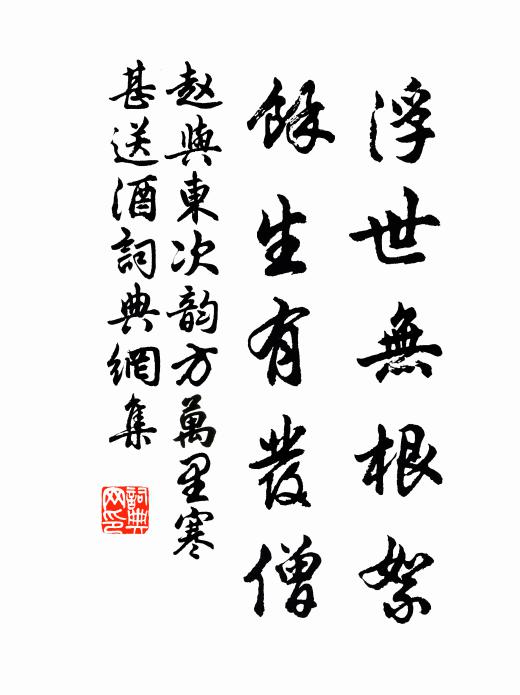 浮世無根絮
餘生有發僧
赵與東次韵方萬里寒
甚送酒詞典網集
詞典
网印